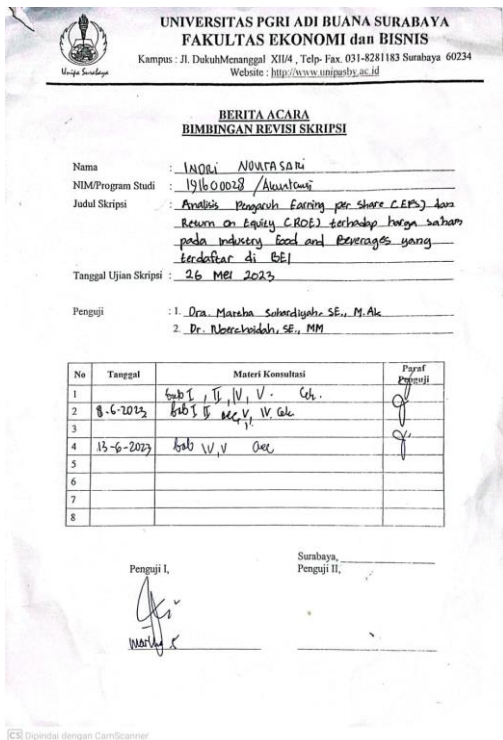 UNIVERSITAS PGRI ADI BUANA SURABAYA
FAKULTAS EKONOMI dan BISNIS
Kampus : Jl. DukuhMenanggal XII/4 , Telp- Fax. 031-8281183 Surabaya 60234
Website : http://www.unipasby.ac.id
Unipa Surabaya
BERITA ACARA
BIMBINGAN REVISI SKRIPSI
Nama : INDRI NOVITASARI
NIM/Program Studi : 191600028 / Akuntansi
Judul Skripsi : Analisis Pengaruh Earning per Share (EPS) dan
Return on Equity (ROE) terhadap harga saham
pada industry food and Beverages yang
terdaftar di BEI
Tanggal Ujian Skripsi : 26 Mei 2023
Penguji : 1. Dra. Martha Suhardiyah, SE., M.Ak
2. Dr. Noerchoidah, SE., MM
No Tanggal Materi Konsultasi Paraf Penguji
1 bab I, II, IV, V.
2 8-6-2023 bab I II acc V, IV.
3
4 13-6-2023 bab IV, V acc
5
6
7
8
Surabaya,
Penguji I, Penguji II,
CS Dipindai dengan CamScanner